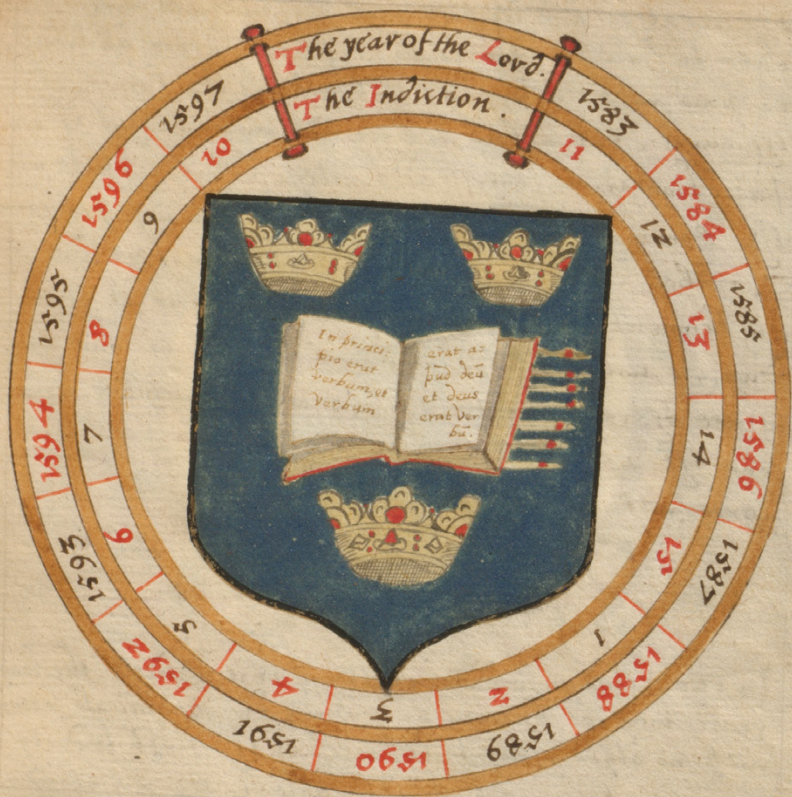 The year of the Lord.
The Indiction.
1583
1584
1585
1586
1587
1588
1589
1590
1591
1592
1593
1594
1595
1596
1597
11
12
13
14
15
1
2
3
4
5
6
7
8
9
10
In princi:
pio erat
verbum, et
verbum
erat a:
pud deū
et deus
erat ver
bū.